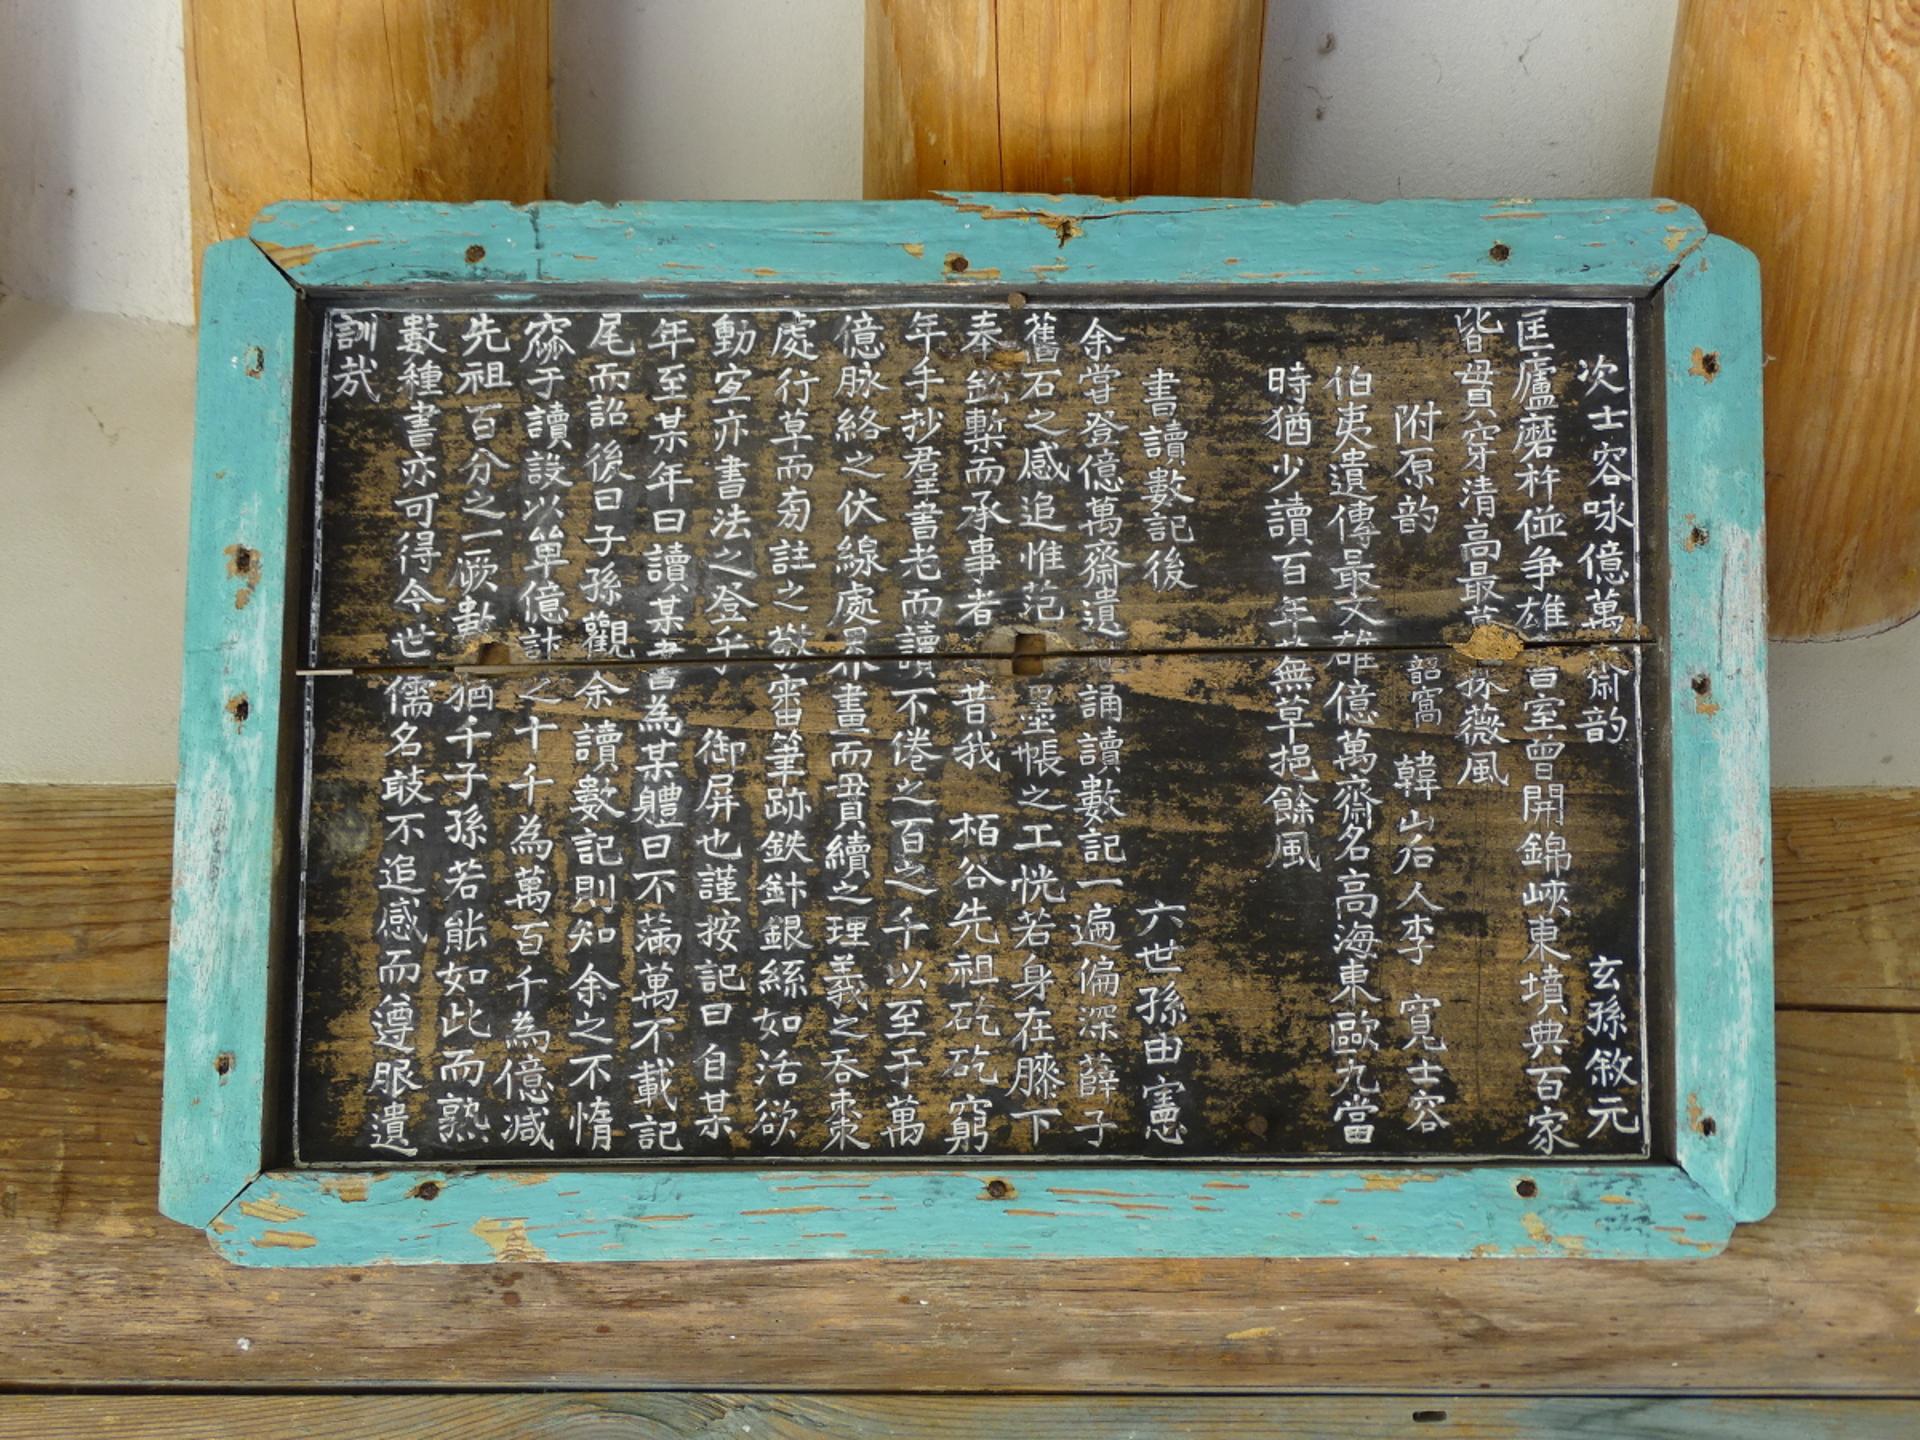 次士容咏億萬齋韵 玄孫敘元
匡廬磨杵傞争雄 室曾開錦峽東墳典百家
皆毌穿清高最 採薇風
附原韵 韶窩 韓山后人李 寬士容
伯夷遺傳最文雄億萬齋名高海東歐九當
時猶少讀百年 無草挹餘風
書讀數記後 六世孫由憲
余甞登億萬齋遺 誦讀數記一遍偏深薛子
舊石之感追惟范 墨帳之工恍若身在膝下
奉 槧而承事者 昔我 栢谷先祖矻矻窮
年手抄羣書老而讀不倦之百之千以至于萬
億脉絡之伏線處 畫而毌貫續之理義之吞棗
處行草而旁註之 密筆跡鉄鉢銀絲如活欲
動宜亦書法之登乎 御屏也謹按記曰自某
年至某年曰讀某書為某體曰不滿萬不載記
尾而詔後曰子孫觀余讀數記則知余之不惰
窳于讀設以單億計之十千為萬百千為億减
先祖百分之一厥數猶千子孫若能如此而熟
數種書亦可得今世儒名敢不追感而遵服遺
訓哉